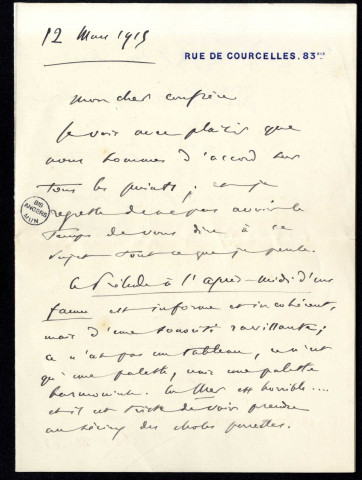 12 Mars 1915
RUE DE COURCELLES, 83 BIS
Mon cher confrère
Je vois avec plaisir que
nous sommes d'accord sur
tous les points ; et je
regrette de ne pas avoir le
BIB
ANGERS
MUN.
temps de vous dire à ce
sujet tout ce que je pense.
Le Prélude à l'après-midi d'un
faune est informe et incohérent,
mais d'une sonorité ravissante ;
ce n'est pas un tableau, ce n'est
qu'une palette, mais une palette
harmonieuse. La Mer est horrible....
et il est triste de voir prendre
au sérieux des choses pareilles.